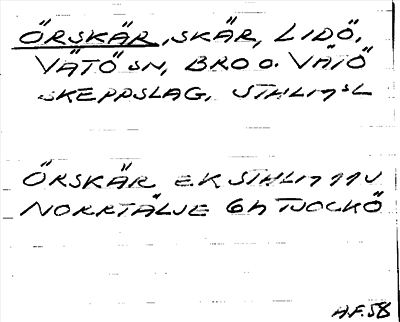 ÖRSKÄR, SKÄR, LIDÖ,
VÄTÖ SN, BRO O. VÄTÖ
SKEPPSLAG, STHLMSL
ÖRSKÄR EK STHLM 11 NV
NORRTÄLJE 6h TJOCKÖ
H.F. 58